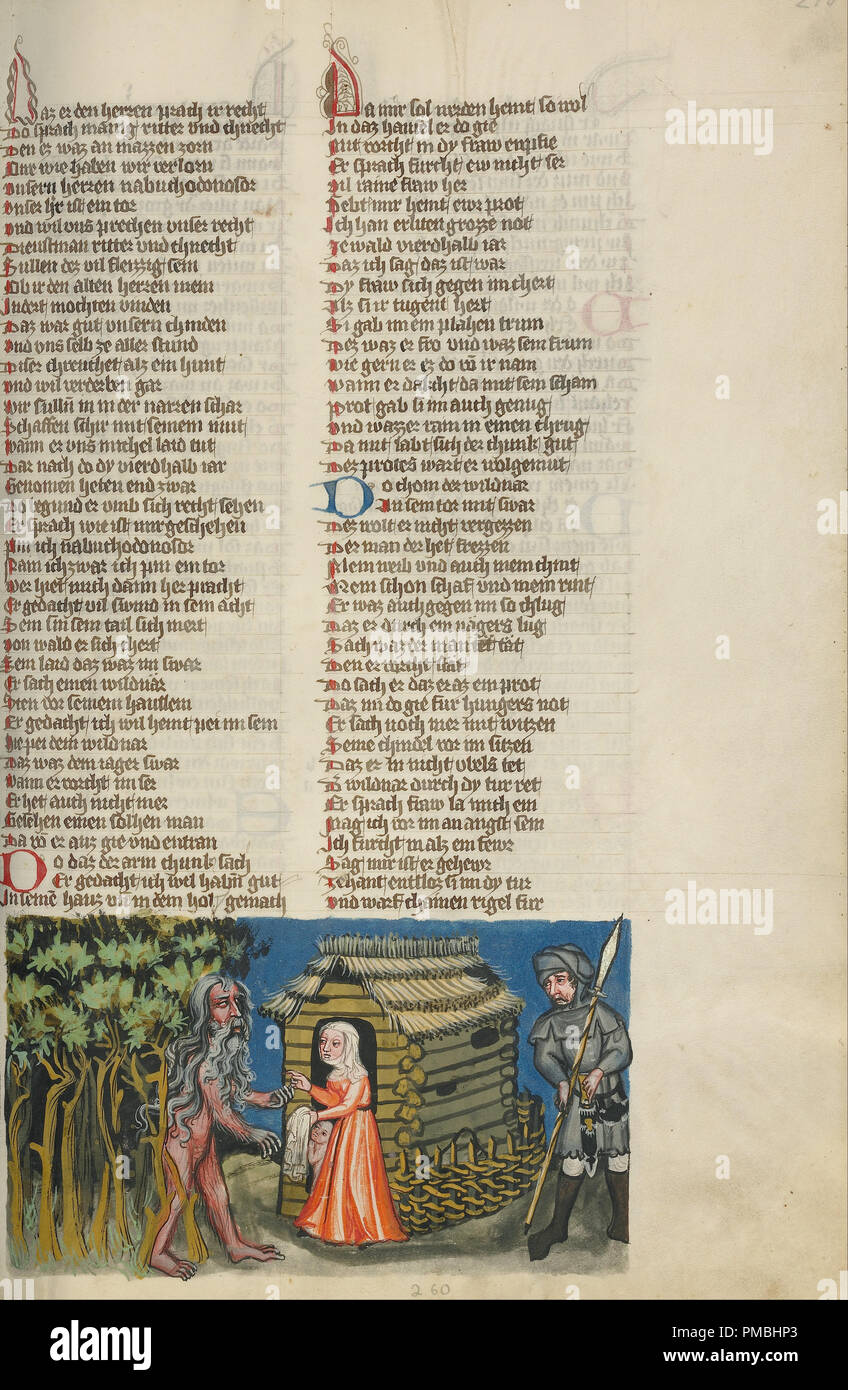 Daz er den herren prach ir recht
Do sprach manig ritter vnd chnecht
Den ez waz an mazzen zorn
Nur wie haben wir verlorn
Vnsern herren nabuchodonosor
Vnser hr ist ein tor
Vnd wil vns prechen vnser recht
Dienstman ritter vnd chnecht
Sullen dez vil fleizzig sein
Ob ir den alten herren mein
Indert mochten vinden
Daz war gut vnsern chinden
Vnd vns selb ze aller stund
Diser chreuchet alz ein hunt
Vnd wil verderben gar
Wir sulln in in der narren schar
Schaffen schir mit seinem mut
Wann er vns michel laid tut
Dar nach do dy vierdhalb iar
Genomen heten end zwar
Do begund er vmb sich recht sehen
Er sprach wie ist mir geschehen
Pin ich nabuchodonosor
Nain ich zwar ich pin ein tor
Wer hiet mich dann her pracht
Er gedacht vil swind in sein acht
Sein sin sein tail sich mert
Von wald er sich chert
Sein laid daz waz im swar
Er sach einen wildnar
Sten vor seinem hauslein
Er gedacht ich wil heint pei im sein
Hie pei dem wildnar
Daz waz dem iager swar
Wann er vorcht im ser
Er het auch nicht mer
Gesehen einen solhen man
Da vo er auz gie vnd entran
Do daz der arm chunk sach
Er gedacht ich wil habn gut
In seine hauz vn in dem holz gemach
Da mir sol werden heint so wol
In daz hausel er do gie
Mit vorcht in dy fraw enpfie
Er sprach furcht ew nicht ser
Vil raine fraw her
Gebt mir heint ewr prot
Ich han erliten grozze not
Ze wald vierdhalb iar
Daz ich sag daz ist war
Dy fraw sich gegen im chert
Alz si ir tugent lert
Si gab im ein plahen trum
Dez waz er fro vnd waz sein frum
Wie gern er ez do vo ir nam
Wann er dacht da mit sein scham
Prot gab si im auch genug
Vnd wazzer ram in einen chrug
Da mit labt sich der chunk gut
Dez protes wart er wolgemut
Do chom der wildnar
An sein tor mit swar
Dez wolt er nicht vergezzen
Der man der het frezzen
Mein weib vnd auch mein chint
Mein schon schaf vnd mein rint
Er waz auch gegen im so chlug
Daz er durch ein nagers lug
Sach waz der man tet
Den er vorcht
Do sach er daz er az ein prot
Daz im do gie fur hungers not
Er sach noch mer mit witzen
Seine chindel vor im sitzen
Daz er in nicht vbels tet
Der wildnar durch dy tur ret
Er sprach fraw la mich ein
Mag ich vor im an angst sein
Ich furcht in alz ein fewr
Sag mir ist er gehewr
Zehant entsloz si im dy tur
Vnd warf chainen rigel fur
260
alamy
alamy
Image ID: PMBHP3
www.alamy.com